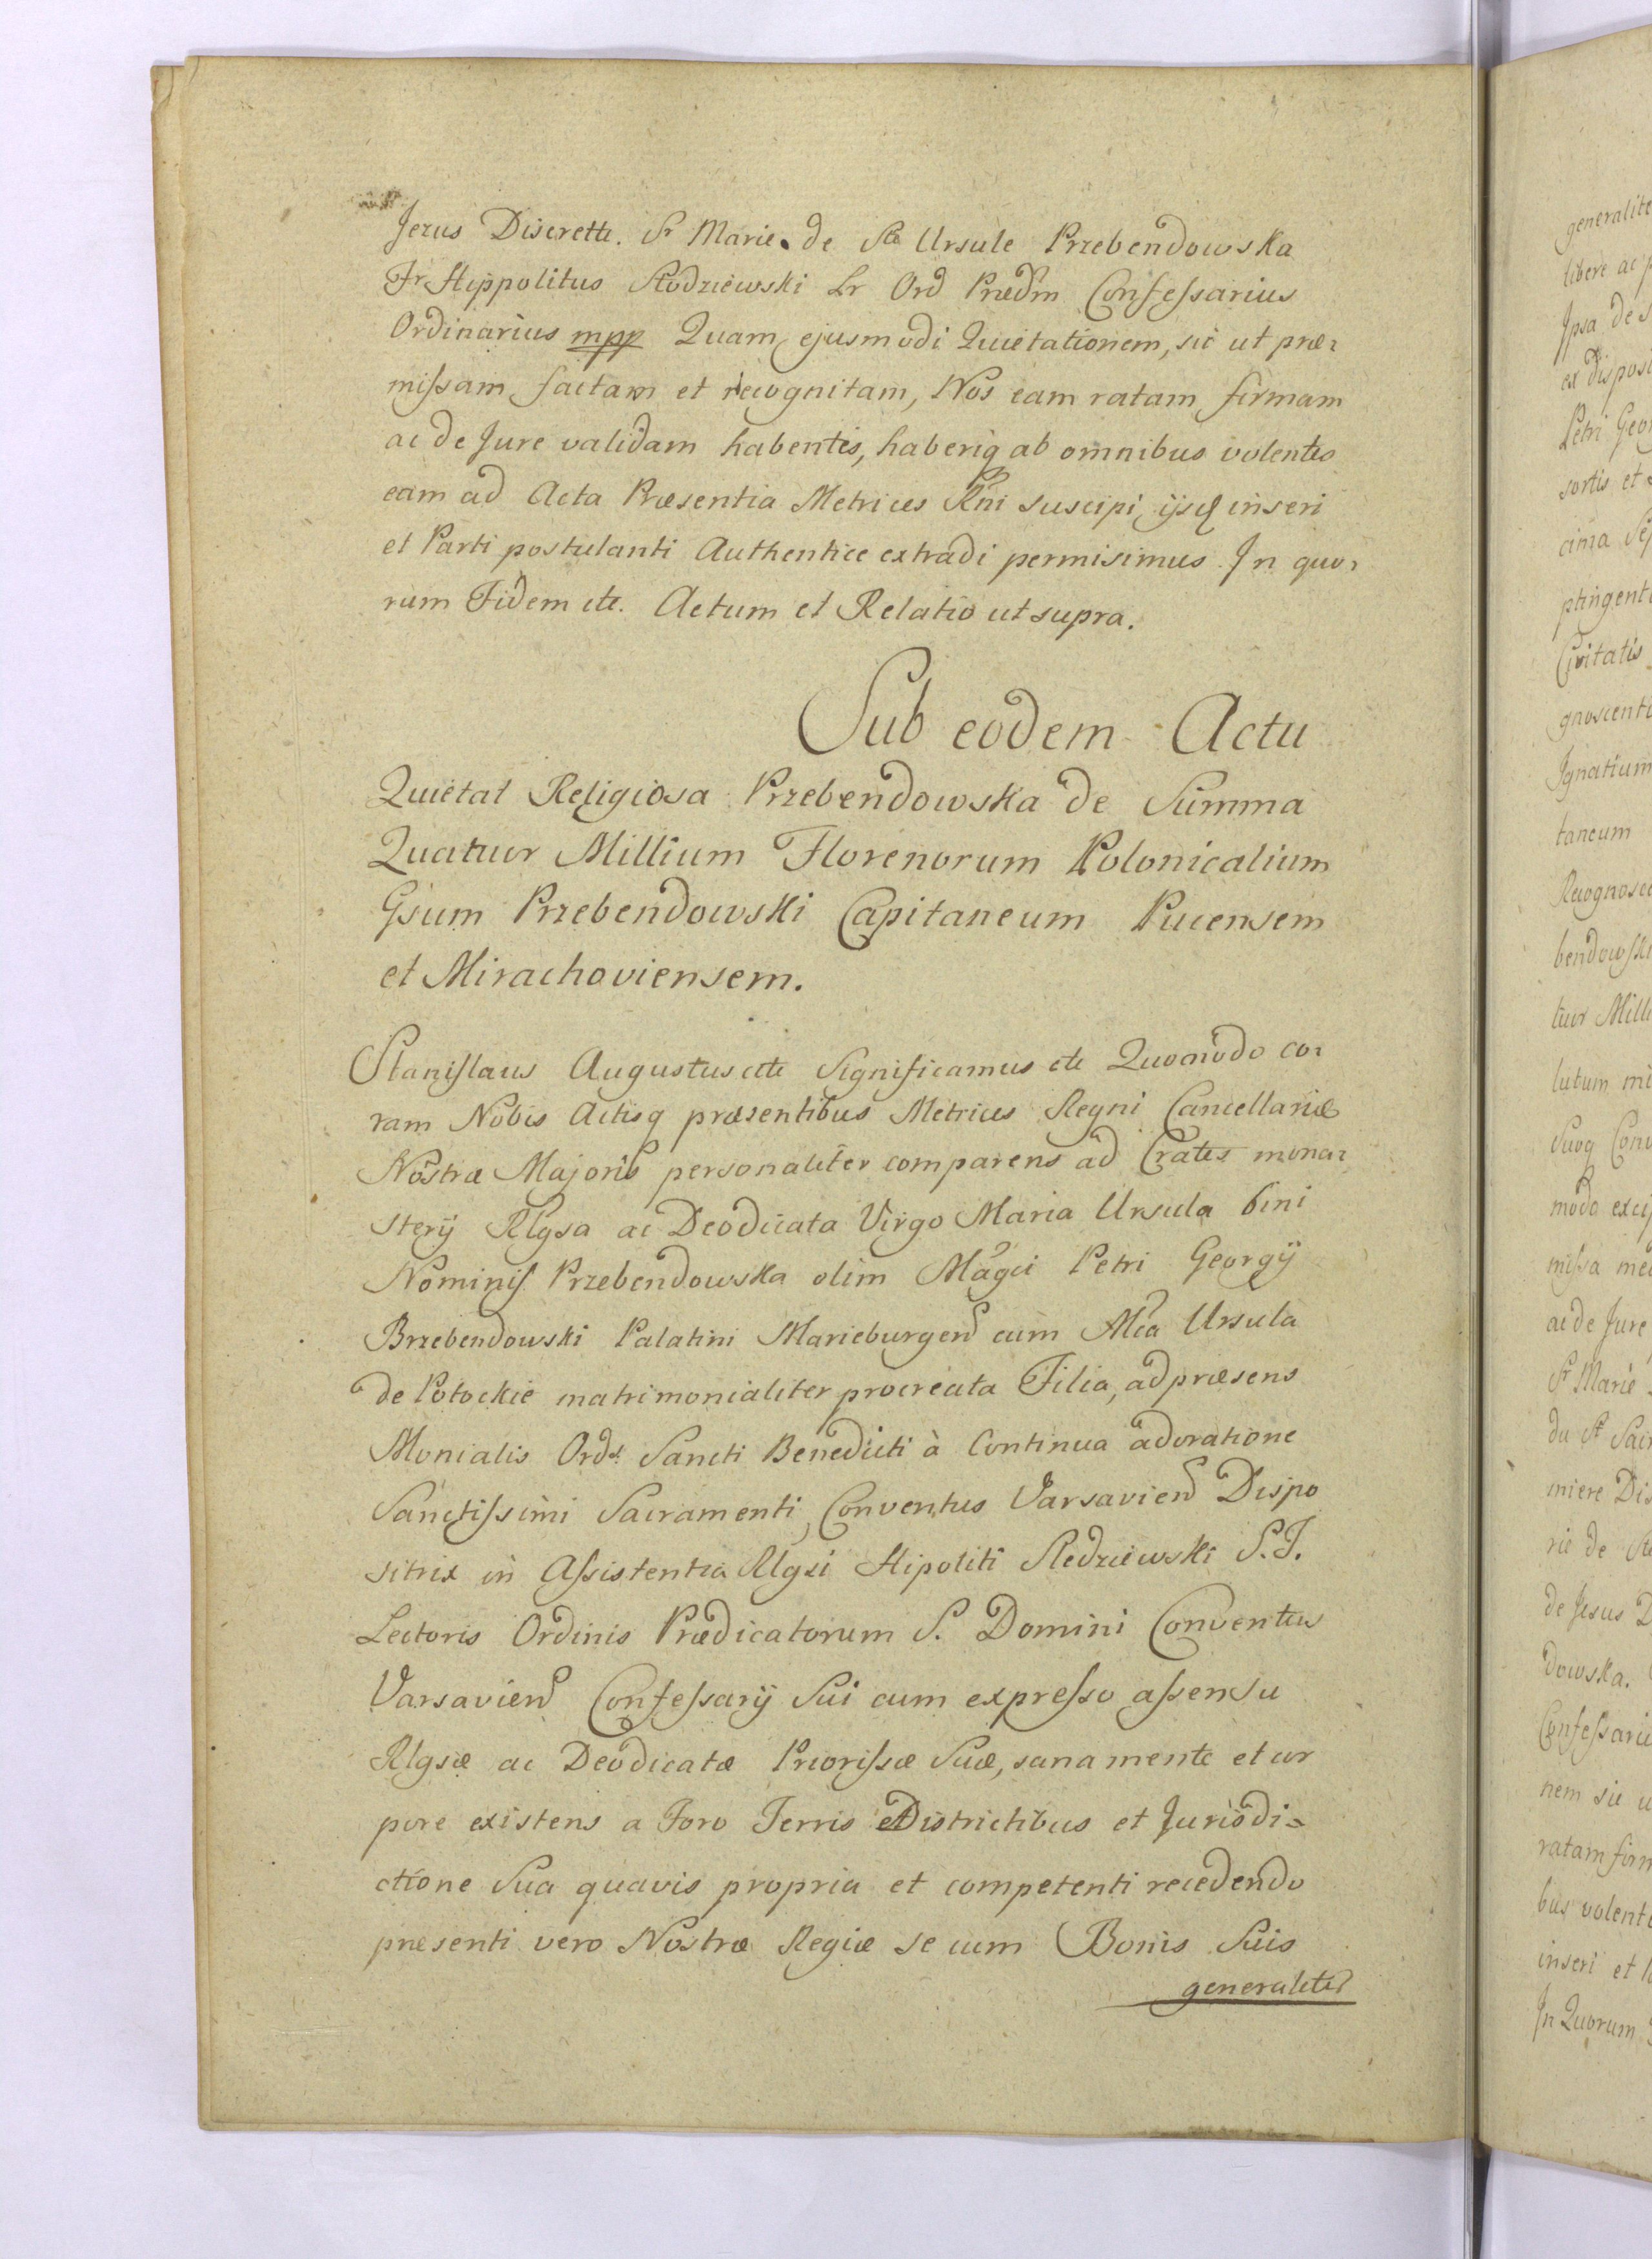 Jezus Discrette. Sr Marie de Ste Ursule Przebendowska
Fr Hippolitus Stodziewski Lr Ord Prædm Confessarius
Ordinarius mpp Quam ejusmodi Quietationem, sic ut præ-
missam factam et recognitam, Nos eam ratam firmam
ac de Jure validam habentes, haberiq ab omnibus volentes
eam ad Acta Præsentia Metrices Rni suscipi, ijsq inseri
et Parti postulanti Authentice extradi permisimus. In quo-
rum Fidem etc. Actum et Relatio ut supra.
Sub eodem Actu
Quietat Religiosa Przebendowska de Summa
Quatuor Millium Florenorum Polonicalium
Gsum Przebendowski Capitaneum Pucensem
et Mirachoviensem.
Stanislaus Augustus etc Significamus etc Quomodo co-
ram Nobis Actisq præsentibus Metrices Regni Cancellariæ
Nostræ Majoris personaliter comparens ad Crates mona-
sterij Rlgsa ac Deodicata Virgo Maria Ursula bini
Nominis Przebendowska olim Magci Petri Georgij
Brzebendowski Palatini Marieburgen cum Mca Ursula
de Potockie matrimonialiter procreata Filia, ad præsens
Monialis Ords Sancti Benedicti à Continua adoratione
Sanctissimi Sacramenti, Conventus Varsavien Dispo
sitrix in Assistentia Rlgsi Hipoliti Sledziewski S.T.
Lectoris Ordinis Prædicatorum S. Domini Conventus
Varsavien Confessarij Sui cum expresso assensu
Rlgsæ ac Deodicatæ Priorissæ Suæ, sana mente et cor
pore existens a Foro Terris et Districtibus et Jurisdi-
ctione Sua quavis propria et competenti recedendo
præsenti vero Nostræ Regiæ se cum Bonis Suis
generaliter